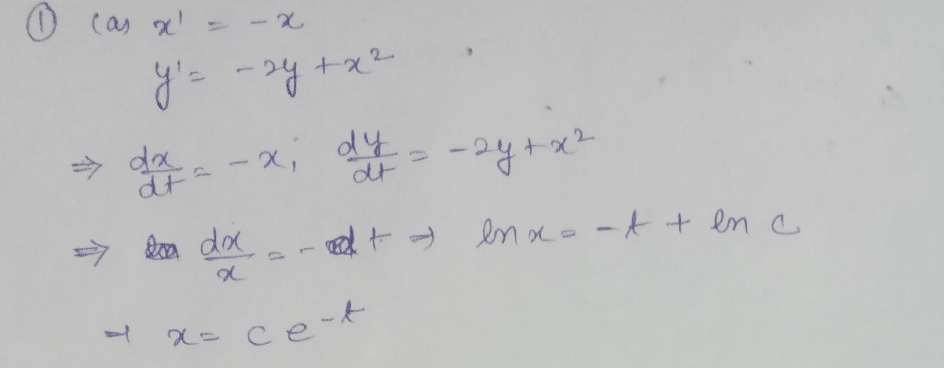 ① (a) x' = -x
y' = -2y + x²
⇒ dx/dt = -x; dy/dt = -2y + x²
⇒ dx/x = -dt ⇒ ln x = -t + ln c
⇒ x = c e^-t